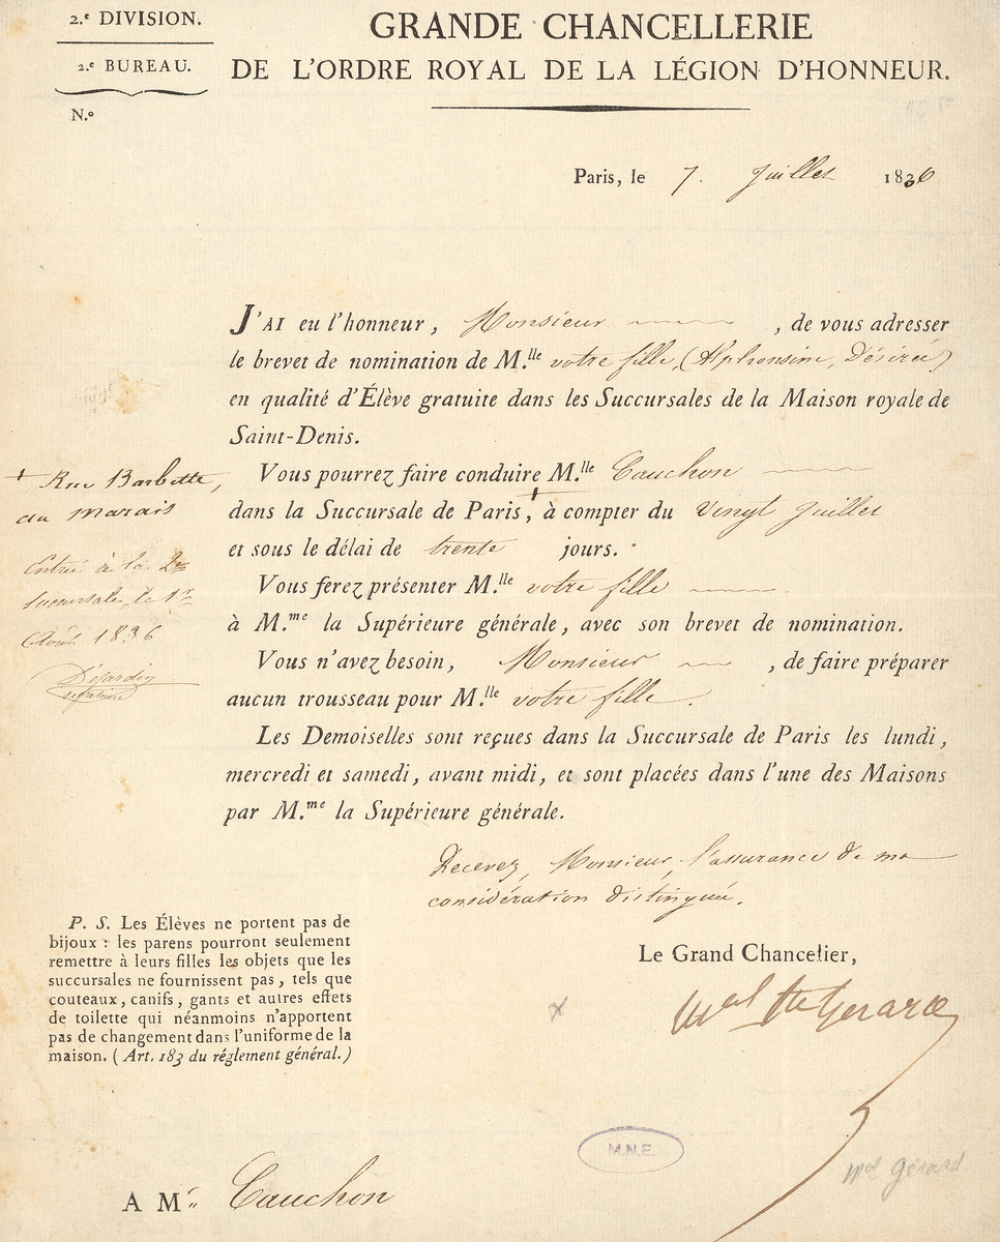 2.e DIVISION.
2.e BUREAU.
N.o
GRANDE CHANCELLERIE
DE L'ORDRE ROYAL DE LA LÉGION D'HONNEUR.
Paris, le 7. Juillet 1836
J'AI eu l'honneur, Monsieur, de vous adresser
le brevet de nomination de M.lle votre fille, (Alphonsine, Désirée)
en qualité d'Élève gratuite dans les Succursales de la Maison royale de
Saint-Denis.
Vous pourrez faire conduire M.lle Cauchon
dans la Succursale de Paris, + à compter du Vingt Juillet
et sous le délai de trente jours.
Vous ferez présenter M.lle votre fille
à M.me la Supérieure générale, avec son brevet de nomination.
Vous n'avez besoin, Monsieur, de faire préparer
aucun trousseau pour M.lle votre fille.
Les Demoiselles sont reçues dans la Succursale de Paris les lundi,
mercredi et samedi, avant midi, et sont placées dans l'une des Maisons
par M.me la Supérieure générale.
Recevez, Monsieur, l'assurance de ma
considération distinguée.
Le Grand Chancelier,
Mal Cte Gérard
+ Rue Barbette,
au marais
Entrée à la 2e
succursale, le 1er
Août 1836
Désardin
secrétaire
P. S. Les Élèves ne portent pas de
bijoux : les parens pourront seulement
remettre à leurs filles les objets que les
succursales ne fournissent pas, tels que
couteaux, canifs, gants et autres effets
de toilette qui néanmoins n'apportent
pas de changement dans l'uniforme de la
maison. (Art. 183 du réglement général.)
M.N.E.
Mal Gérard
A Mr Cauchon